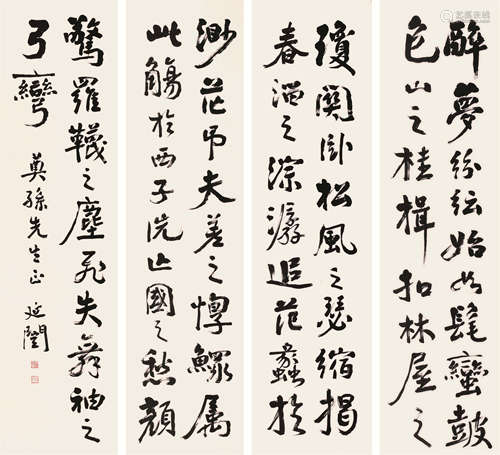 醉夢紛紜始如髦蠻鼓
包山之桂楫扣林屋之
瓊關臥松風之瑟縮揭
春溜之淙潺追范蠡於
渺茫弔夫差之惸鰥属
此觴於西子洗亡國之愁顏
驚羅韈之塵飛失舞袖之
弓彎
奠孫先生正 延闓